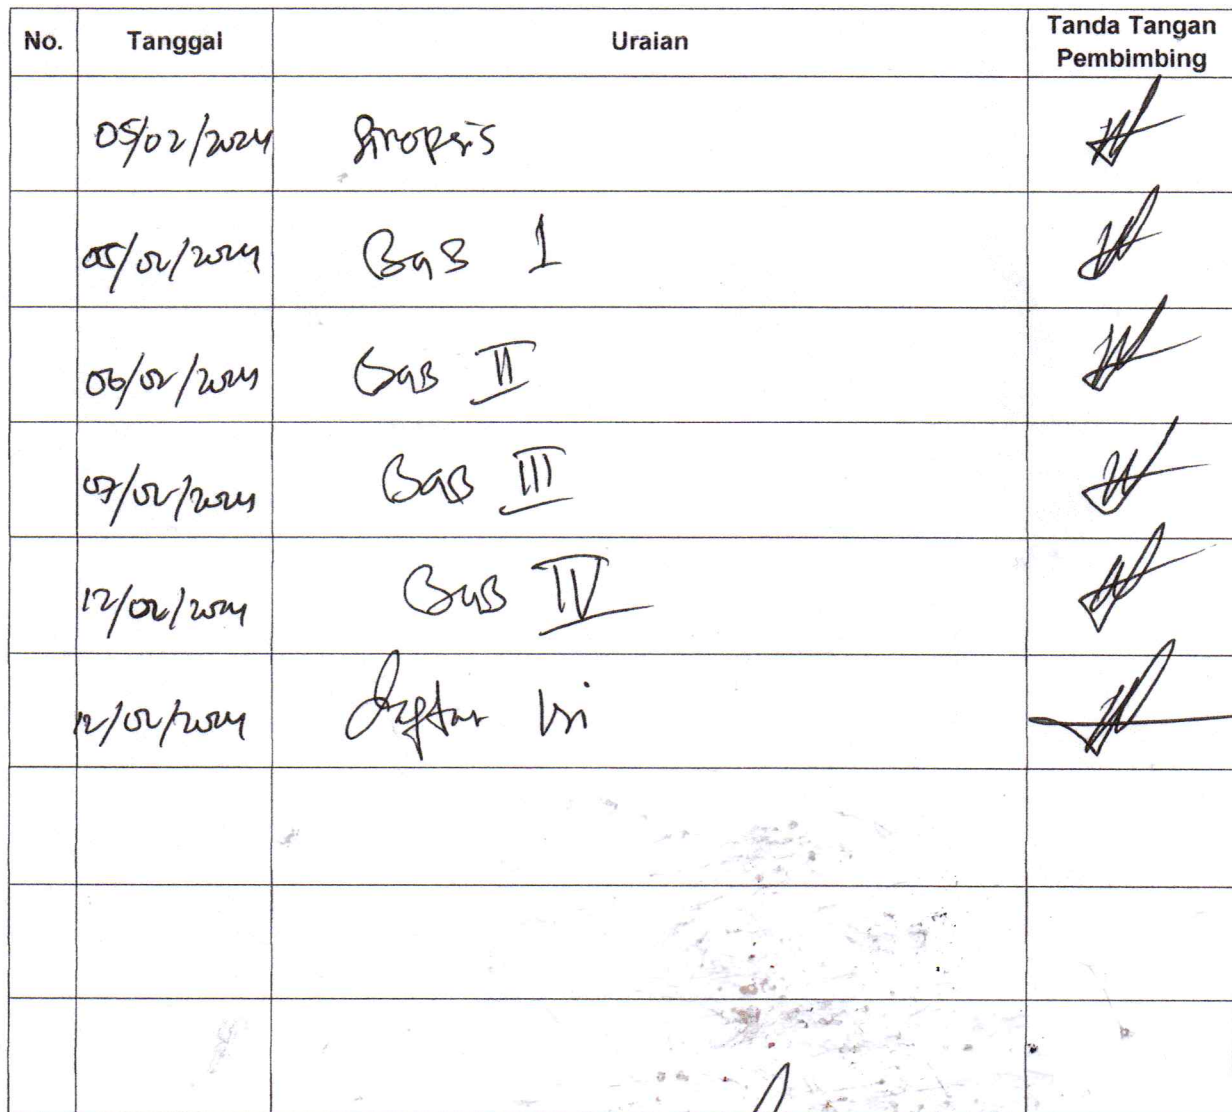 No. Tanggal Uraian Tanda Tangan Pembimbing
05/02/2024 Sinopsis
05/02/2024 Bab I
06/02/2024 Bab II
07/02/2024 Bab III
12/02/2024 Bab IV
12/02/2024 daftar Isi